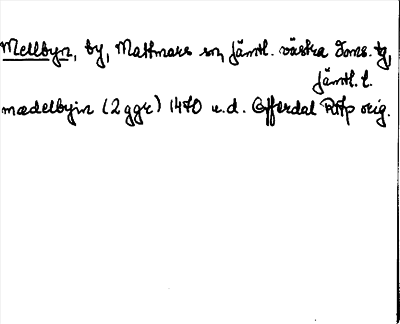 Mellbyn, by, Mattmars sn, Jämtl. västra doms. tg,
Jämtl. l.
mædelbyin (2 ggr) 1470 u.d. Offerdal RAp orig.